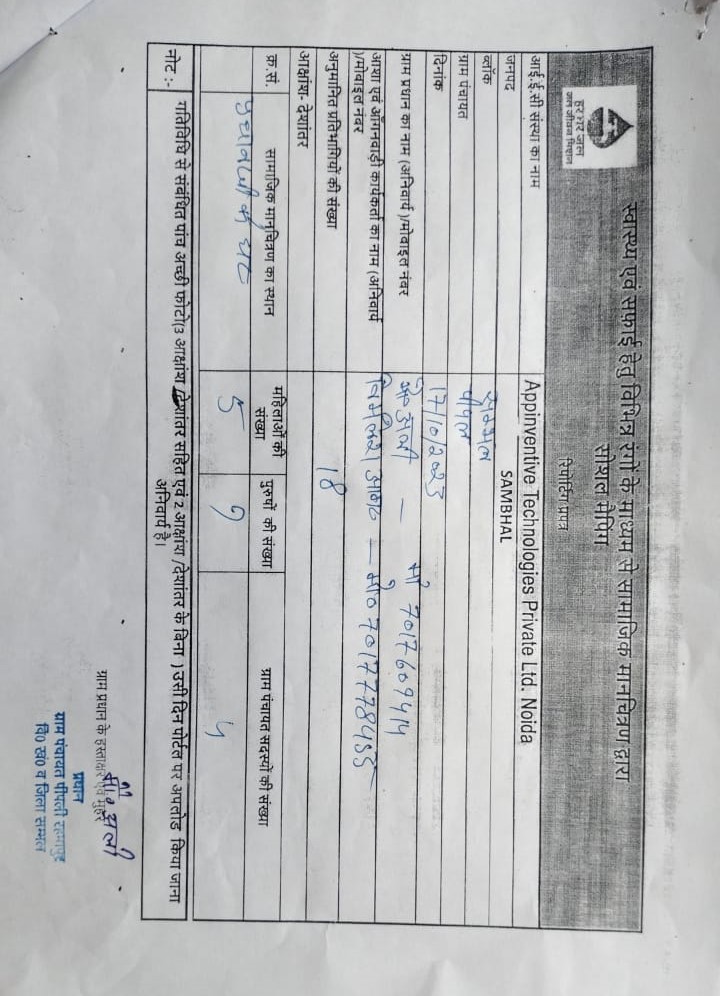 स्वास्थ्य एवं सफाई हेतु विभिन्न रंगों के माध्यम से सामाजिक मानचित्रण द्वारा
सोशल मैपिंग
रिपोर्टिंग प्रपत्र
हर घर जल
जल जीवन मिशन
आई.ई.सी संस्था का नाम Appinventive Technologies Private Ltd. Noida
जनपद SAMBHAL
ब्लॉक सम्भल
ग्राम पंचायत
दिनांक 17/6/2023
ग्राम प्रधान का नाम (अनिवार्य )/मोबाइल नंबर अली — मो 7017609414
आशा एवं आँगनवाड़ी कार्यकर्ता का नाम (अनिवार्य
)/मोबाइल नंबर — मो0 7017778455
अनुमानित प्रतिभागियों की संख्या 18
आक्षांश- देशांतर
क्र.सं. सामाजिक मानुचित्रण का स्थान महिलाओं की संख्या पुरुषों की संख्या ग्राम पंचायत सदस्यों की संख्या
के घर 5 9 4
नोट :- गतिविधि से संबंधित पांच अच्छी फोटो(3 आक्षांश /देशांतर सहित एवं 2 आक्षांश /देशांतर के बिना ) उसी दिन पोर्टल पर अपलोड किया जाना
अनिवार्य है।
ग्राम प्रधान के हस्ताक्षर एवं मुहर
प्रधान
ग्राम पंचायत पीपली रहमापुर
वि0 खं0 व जिला सम्भल